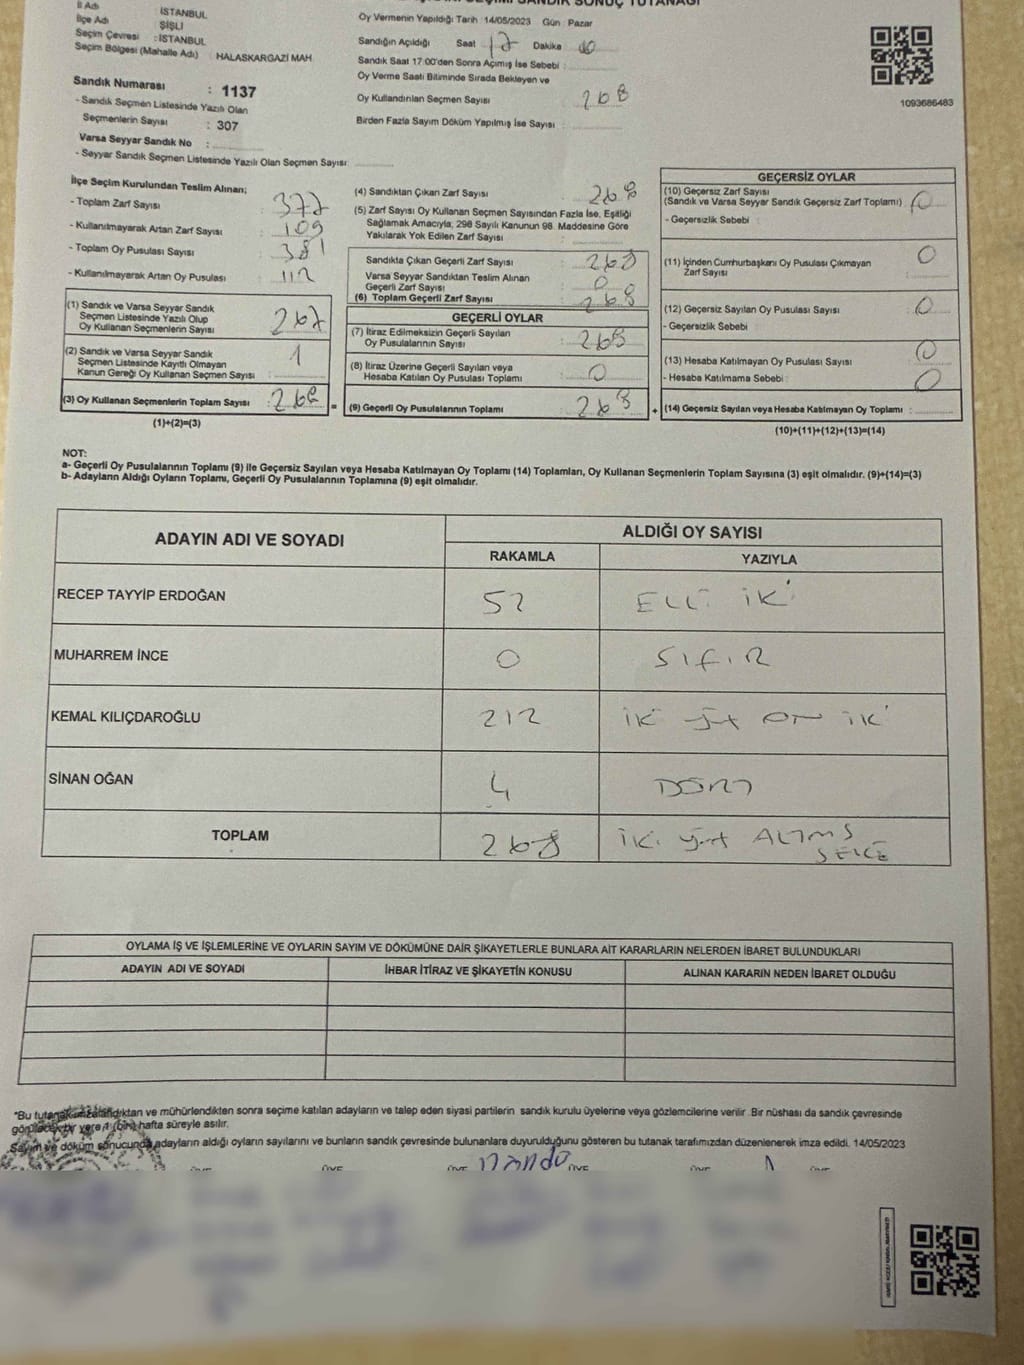 İl Adı İSTANBUL
İlçe Adı ŞİŞLİ
Seçim Çevresi : İSTANBUL
Seçim Bölgesi (Mahalle Adı) HALASKARGAZİ MAH
Sandık Numarası : 1137
- Sandık Seçmen Listesinde Yazılı Olan
Seçmenlerin Sayısı : 307
Varsa Seyyar Sandık No :
- Seyyar Sandık Seçmen Listesinde Yazılı Olan Seçmen Sayısı:
SANDIK SONUÇ TUTANAĞI
Oy Vermenin Yapıldığı Tarih 14/05/2023 Gün : Pazar
Sandığın Açıldığı Saat 17 Dakika 00
Sandık Saat 17:00'den Sonra Açılmış İse Sebebi :
Oy Verme Saati Bitiminde Sırada Bekleyen ve
Oy Kullandırılan Seçmen Sayısı : 268
Birden Fazla Sayım Döküm Yapılmış İse Sayısı :
1093686483
İlçe Seçim Kurulundan Teslim Alınan;
- Toplam Zarf Sayısı : 377
- Kullanılmayarak Artan Zarf Sayısı : 109
- Toplam Oy Pusulası Sayısı : 381
- Kullanılmayarak Artan Oy Pusulası : 112
(1) Sandık ve Varsa Seyyar Sandık
Seçmen Listesinde Yazılı Olup
Oy Kullanan Seçmenlerin Sayısı : 267
(2) Sandık ve Varsa Seyyar Sandık
Seçmen Listesinde Kayıtlı Olmayan
Kanun Gereği Oy Kullanan Seçmen Sayısı : 1
(3) Oy Kullanan Seçmenlerin Toplam Sayısı : 268 =
(1)+(2)=(3)
(4) Sandıktan Çıkan Zarf Sayısı : 268
(5) Zarf Sayısı Oy Kullanan Seçmen Sayısından Fazla İse, Eşitliği
Sağlamak Amacıyla, 298 Sayılı Kanunun 98. Maddesine Göre
Yakılarak Yok Edilen Zarf Sayısı :
Sandıkta Çıkan Geçerli Zarf Sayısı : 268
Varsa Seyyar Sandıktan Teslim Alınan
Geçerli Zarf Sayısı : 0
(6) Toplam Geçerli Zarf Sayısı : 268
GEÇERLİ OYLAR
(7) İtiraz Edilmeksizin Geçerli Sayılan
Oy Pusulalarının Sayısı : 268
(8) İtiraz Üzerine Geçerli Sayılan veya
Hesaba Katılan Oy Pusulası Toplamı : 0
(9) Geçerli Oy Pusulalarının Toplamı : 268 +
GEÇERSİZ OYLAR
(10) Geçersiz Zarf Sayısı
(Sandık ve Varsa Seyyar Sandık Geçersiz Zarf Toplamı) : 0
- Geçersizlik Sebebi :
(11) İçinden Cumhurbaşkanı Oy Pusulası Çıkmayan
Zarf Sayısı : 0
(12) Geçersiz Sayılan Oy Pusulası Sayısı : 0
- Geçersizlik Sebebi :
(13) Hesaba Katılmayan Oy Pusulası Sayısı : 0
- Hesaba Katılmama Sebebi : 0
(14) Geçersiz Sayılan veya Hesaba Katılmayan Oy Toplamı :
(10)+(11)+(12)+(13)=(14)
NOT:
a- Geçerli Oy Pusulalarının Toplamı (9) ile Geçersiz Sayılan veya Hesaba Katılmayan Oy Toplamı (14) Toplamları, Oy Kullanan Seçmenlerin Toplam Sayısına (3) eşit olmalıdır. (9)+(14)=(3)
b- Adayların Aldığı Oyların Toplamı, Geçerli Oy Pusulalarının Toplamına (9) eşit olmalıdır.
ADAYIN ADI VE SOYADI ALDIĞI OY SAYISI
RAKAMLA YAZIYLA
RECEP TAYYİP ERDOĞAN 52 ELLİ İKİ
MUHARREM İNCE 0 SIFIR
KEMAL KILIÇDAROĞLU 212 İKİ yüz ON İKİ
SİNAN OĞAN 4 DÖRT
TOPLAM 268 İKİ yüz ALTMIŞ
SEKİZ
OYLAMA İŞ VE İŞLEMLERİNE VE OYLARIN SAYIM VE DÖKÜMÜNE DAİR ŞİKAYETLERLE BUNLARA AİT KARARLARIN NELERDEN İBARET BULUNDUKLARI
ADAYIN ADI VE SOYADI İHBAR İTİRAZ VE ŞİKAYETİN KONUSU ALINAN KARARIN NEDEN İBARET OLDUĞU
*Bu tutanak imzalandıktan ve mühürlendikten sonra seçime katılan adayların ve talep eden siyasi partilerin sandık kurulu üyelerine veya gözlemcilerine verilir. Bir nüshası da sandık çevresinde
görülecek bir yere 1 (bir) hafta süreyle asılır.
Sayım ve döküm sonucunda adayların aldığı oyların sayılarını ve bunların sandık çevresinde bulunanlara duyurulduğunu gösteren bu tutanak tarafımızdan düzenlenerek imza edildi. 14/05/2023
ÜYE ÜYE ÜYE ÜYE ÜYE